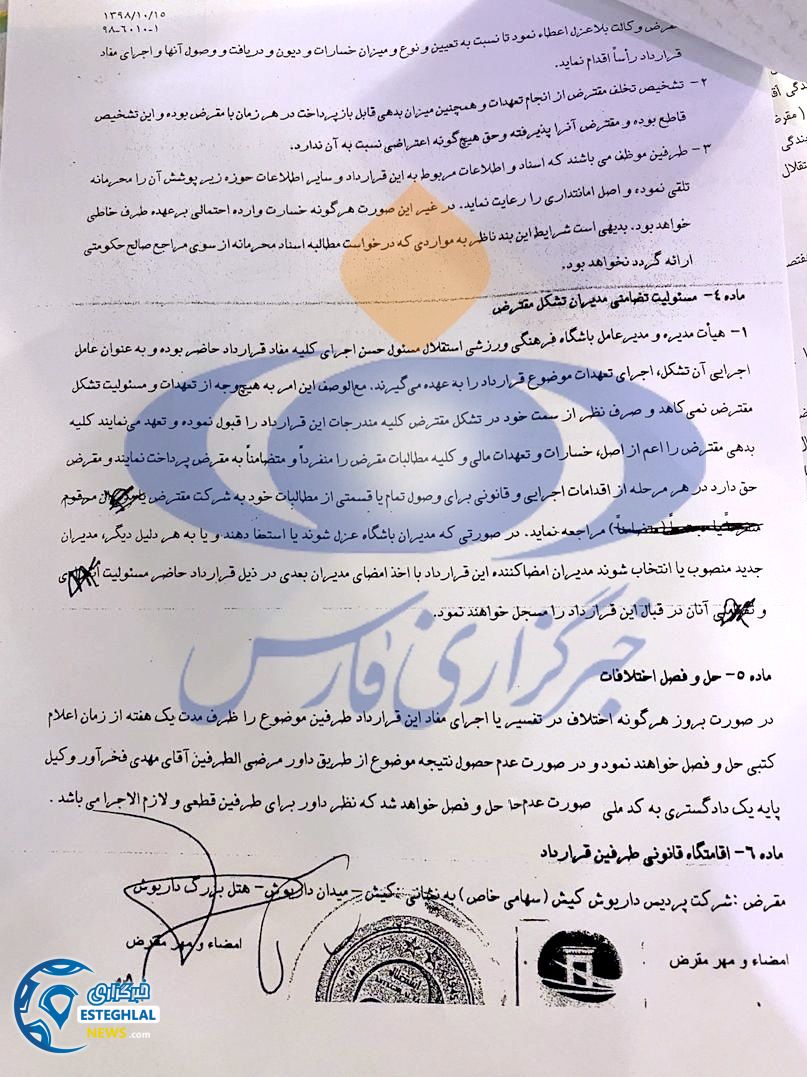 ۱۳۹۸/۱۰/۱۵
۹۸-۶۰۱۰-۱
مقرض وکالت بلاعزل اعطاء نمود تا نسبت به تعیین و نوع و میزان خسارات و دیون و دریافت و وصول آنها و اجرای مفاد
قرارداد رأساً اقدام نماید.
۲- تشخیص تخلف مقترض از انجام تعهدات و همچنین میزان بدهی قابل بازپرداخت در هر زمان با مقرض بوده و این تشخیص
قاطع بوده و مقترض آنرا پذیرفته وحق هیچ‌گونه اعتراضی نسبت به آن ندارد.
۳- طرفین موظف می باشند که اسناد و اطلاعات مربوط به این قرارداد و سایر اطلاعات حوزه زیر پوشش آن را محرمانه
تلقی نموده و اصل امانتداری را رعایت نماید. در غیر این صورت هرگونه خسارت وارده احتمالی برعهده طرف خاطی
خواهد بود. بدیهی است شرایط این بند ناظر به مواردی که درخواست مطالبه اسناد محرمانه از سوی مراجع صالح حکومتی
ارائه گردد نخواهد بود.
ماده ۴- مسئولیت تضامنی مدیران تشکل مقترض
۱- هیأت مدیره و مدیرعامل باشگاه فرهنگی ورزشی استقلال مسئول حسن اجرای کلیه مفاد قرارداد حاضر بوده و به عنوان عامل
اجرایی آن تشکل، اجرای تعهدات موضوع قرارداد را به عهده می‌گیرند. مع‌الوصف این امر به هیچ‌وجه از تعهدات و مسئولیت تشکل
مقترض نمی‌کاهد و صرف نظر از سمت خود در تشکل مقترض کلیه مندرجات این قرارداد را قبول نموده و تعهد می‌نمایند کلیه
بدهی مقترض را اعم از اصل، خسارات و تعهدات مالی و کلیه مطالبات مقرض را منفرداً و متضامناً به مقرض پرداخت نمایند و مقرض
حق دارد در هر مرحله از اقدامات اجرایی و قانونی برای وصول تمام یا قسمتی از مطالبات خود به شرکت مقترض یا مرقوم
مراجعه نماید. در صورتی که مدیران باشگاه عزل شوند یا استعفا دهند و یا به هر دلیل دیگر، مدیران
جدید منصوب یا انتخاب شوند مدیران امضاکننده این قرارداد با اخذ امضای مدیران بعدی در ذیل قرارداد حاضر مسئولیت
و آنان در قبال این قرارداد را مسجل خواهند نمود.
ماده ۵- حل و فصل اختلافات
در صورت بروز هرگونه اختلاف در تفسیر یا اجرای مفاد این قرارداد طرفین موضوع را ظرف مدت یک هفته از زمان اعلام
کتبی حل و فصل خواهند نمود و در صورت عدم حصول نتیجه موضوع از طریق داور مرضی الطرفین آقای مهدی فخرآور وکیل
پایه یک دادگستری به کد ملی صورت عدم‌حا حل و فصل خواهد شد که نظر داور برای طرفین قطعی و لازم الاجرا می باشد .
ماده ۶- اقامتگاه قانونی طرفین قرارداد
مقرض :شرکت پردیس داریوش کیش (سهامی خاص) به نشانی :کیش – میدان داریوش- هتل بزرگ داریوش
امضاء و مهر مقرض
امضاء و مهر مقرض
خبرگزاری فارس
خبرگزاری
ESTEGHLAL
NEWS.com